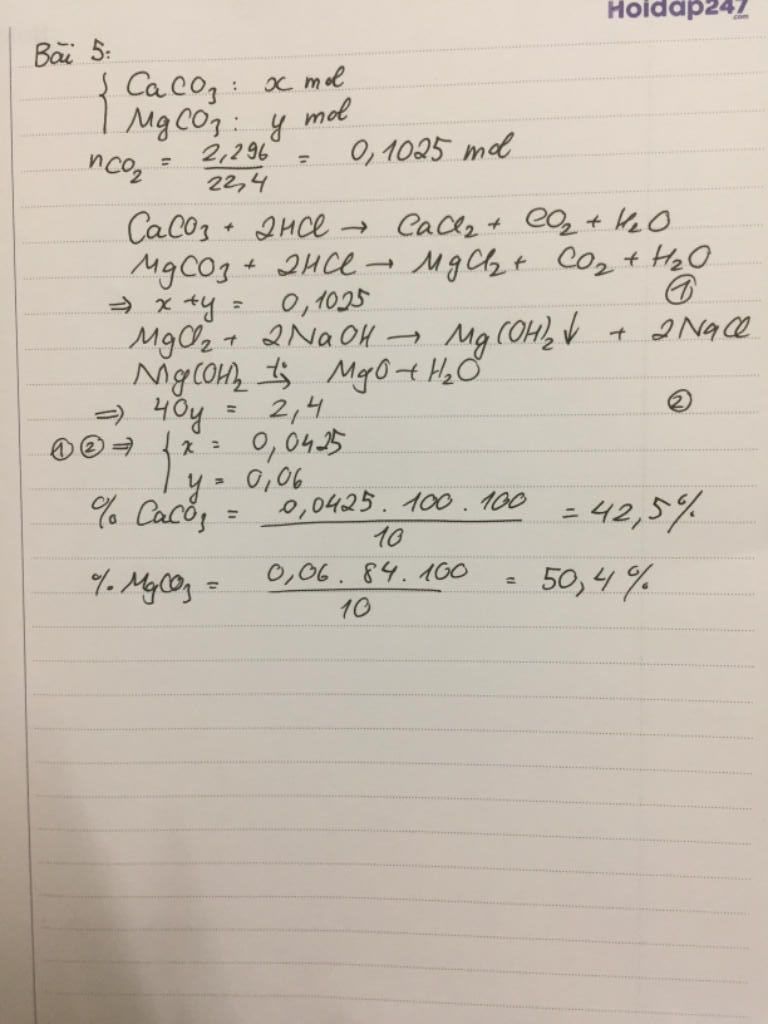 Hoidap247
.com
Bài 5:
{ CaCO₃ : x mol
MgCO₃ : y mol
nCO₂ = 2,296 / 22,4 = 0,1025 mol
CaCO₃ + 2HCl → CaCl₂ + CO₂ + H₂O
MgCO₃ + 2HCl → MgCl₂ + CO₂ + H₂O
⇒ x + y = 0,1025 ①
MgCl₂ + 2NaOH → Mg(OH)₂↓ + 2NaCl
Mg(OH)₂ t°→ MgO + H₂O
⇒ 40y = 2,4 ②
① ② ⇒ { x = 0,0425
y = 0,06
% CaCO₃ = 0,0425 . 100 . 100 / 10 = 42,5%
% MgCO₃ = 0,06 . 84 . 100 / 10 = 50,4%